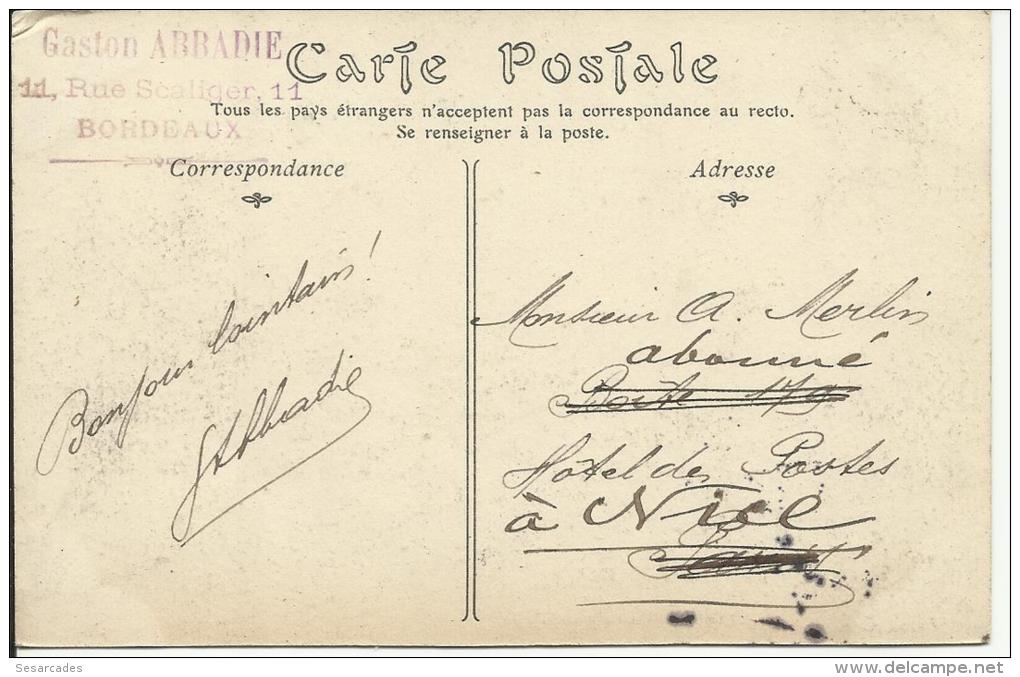 Gaston ABBADIE
11, Rue Scaliger, 11
BORDEAUX
Carte Postale
Tous les pays étrangers n'acceptent pas la correspondance au recto.
Se renseigner à la poste.
Correspondance
Adresse
Bonjour lointain!
GAbbadie
Monsieur A. Merlin
abonné
Boîte 179
Hôtel des Postes
à Nice
Sesarcades
www.delcampe.net